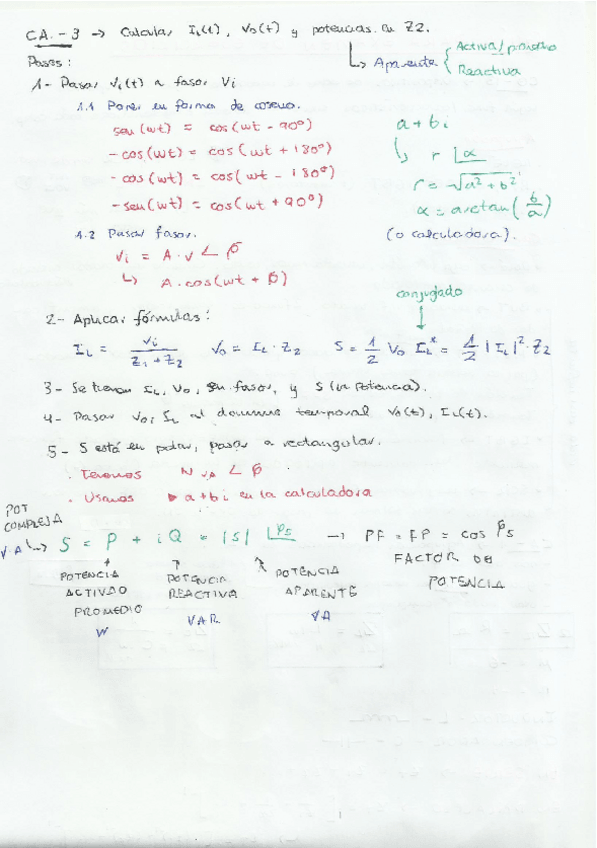 CA.-3 → Calcular IL(t), Vo(t) y potencias en Z2.
↳ Aparente { Activa/promedio
Reactiva
Pasos:
1- Pasar Vi(t) a fasor Vi
1.1 Poner en forma de coseno.
sen(wt) = cos(wt - 90º)
-cos(wt) = cos(wt + 180º)
-cos(wt) = cos(wt - 180º)
-sen(wt) = cos(wt + 90º)
a + bi
↳ r ∠α
r = √(a² + b²)
α = arctan(b/a)
(o calculadora).
1.2 Pasar fasor.
Vi = A·v ∠ β
↳ A·cos(wt + β)
conjugado
2- Aplicar fórmulas:
IL = Vi / (Z1 + Z2) Vo = IL·Z2 S = 1/2 Vo IL* = 1/2 |IL|²·Z2
3- Se tienen IL, Vo, en fasor, y S (en potencia).
4- Pasar Vo, IL al dominio temporal Vo(t), IL(t).
5- S está en polar, pasar a rectangular.
· Tenemos N VA ∠ β
· Usamos ▶ a+bi en la calculadora
POT
COMPLEJA
V·A ↳ S = P + iQ = |S| ∠φs → PF = FP = cos φs
FACTOR DE
POTENCIA
POTENCIA
ACTIVA O
PROMEDIO
W
POTENCIA
REACTIVA
VAR
POTENCIA
APARENTE
VA